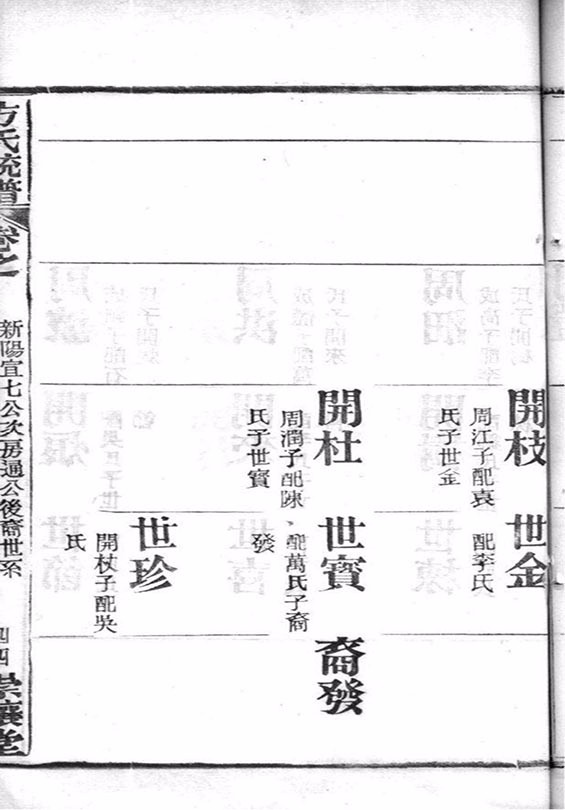 開枝
周江子配袁
氏子世金
世金
配李氏
開杜
周潤子配陳
氏子世寶
世寶
配萬氏子裔
發
裔發
世珍
開杖子配吳
氏
方氏統譜
卷之
新陽宜七公次房通公後裔世系
四四
崇讓堂